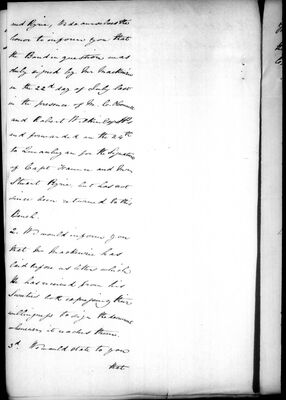 and Ryrie, We do ourselves the
honor to inform you that
the Bond in question was
duly signed by Mr Mackenzie
on the 22d day of July last
in the presence of
and Robert
and forwarded on the 24th
to Queanbeyan for the Signature
of Capt Faunce and Mr
Stuart Ryrie, but has not
since been returned to this
Bench.
2. We would inform you
that Mr Mackenzie has
laid before us letters which
He has received from his
Sureties both expressing their
willingness to sign the document
whenever it reaches them.
3d. We would state to you
that